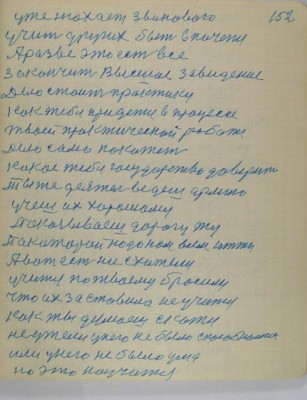 152
уже тохает звинового
учит других быть в почоти
А разве это ест все
Закончит Высшае Заведение
Дело стоит практики
как тебя придети в процесе
твоей практической работи
дело само покажет
какое тебя государство доверит
ты же детям ведеш
учеш их хорошому
Показываеш дорогу ту
Па которай надо нам всем итти
А вот ест ни хители
учити по твоему бросили
что их заставила не учити
как ти думаеш скажи
не ужели у него не было способности
или у него не было ума
но это научити